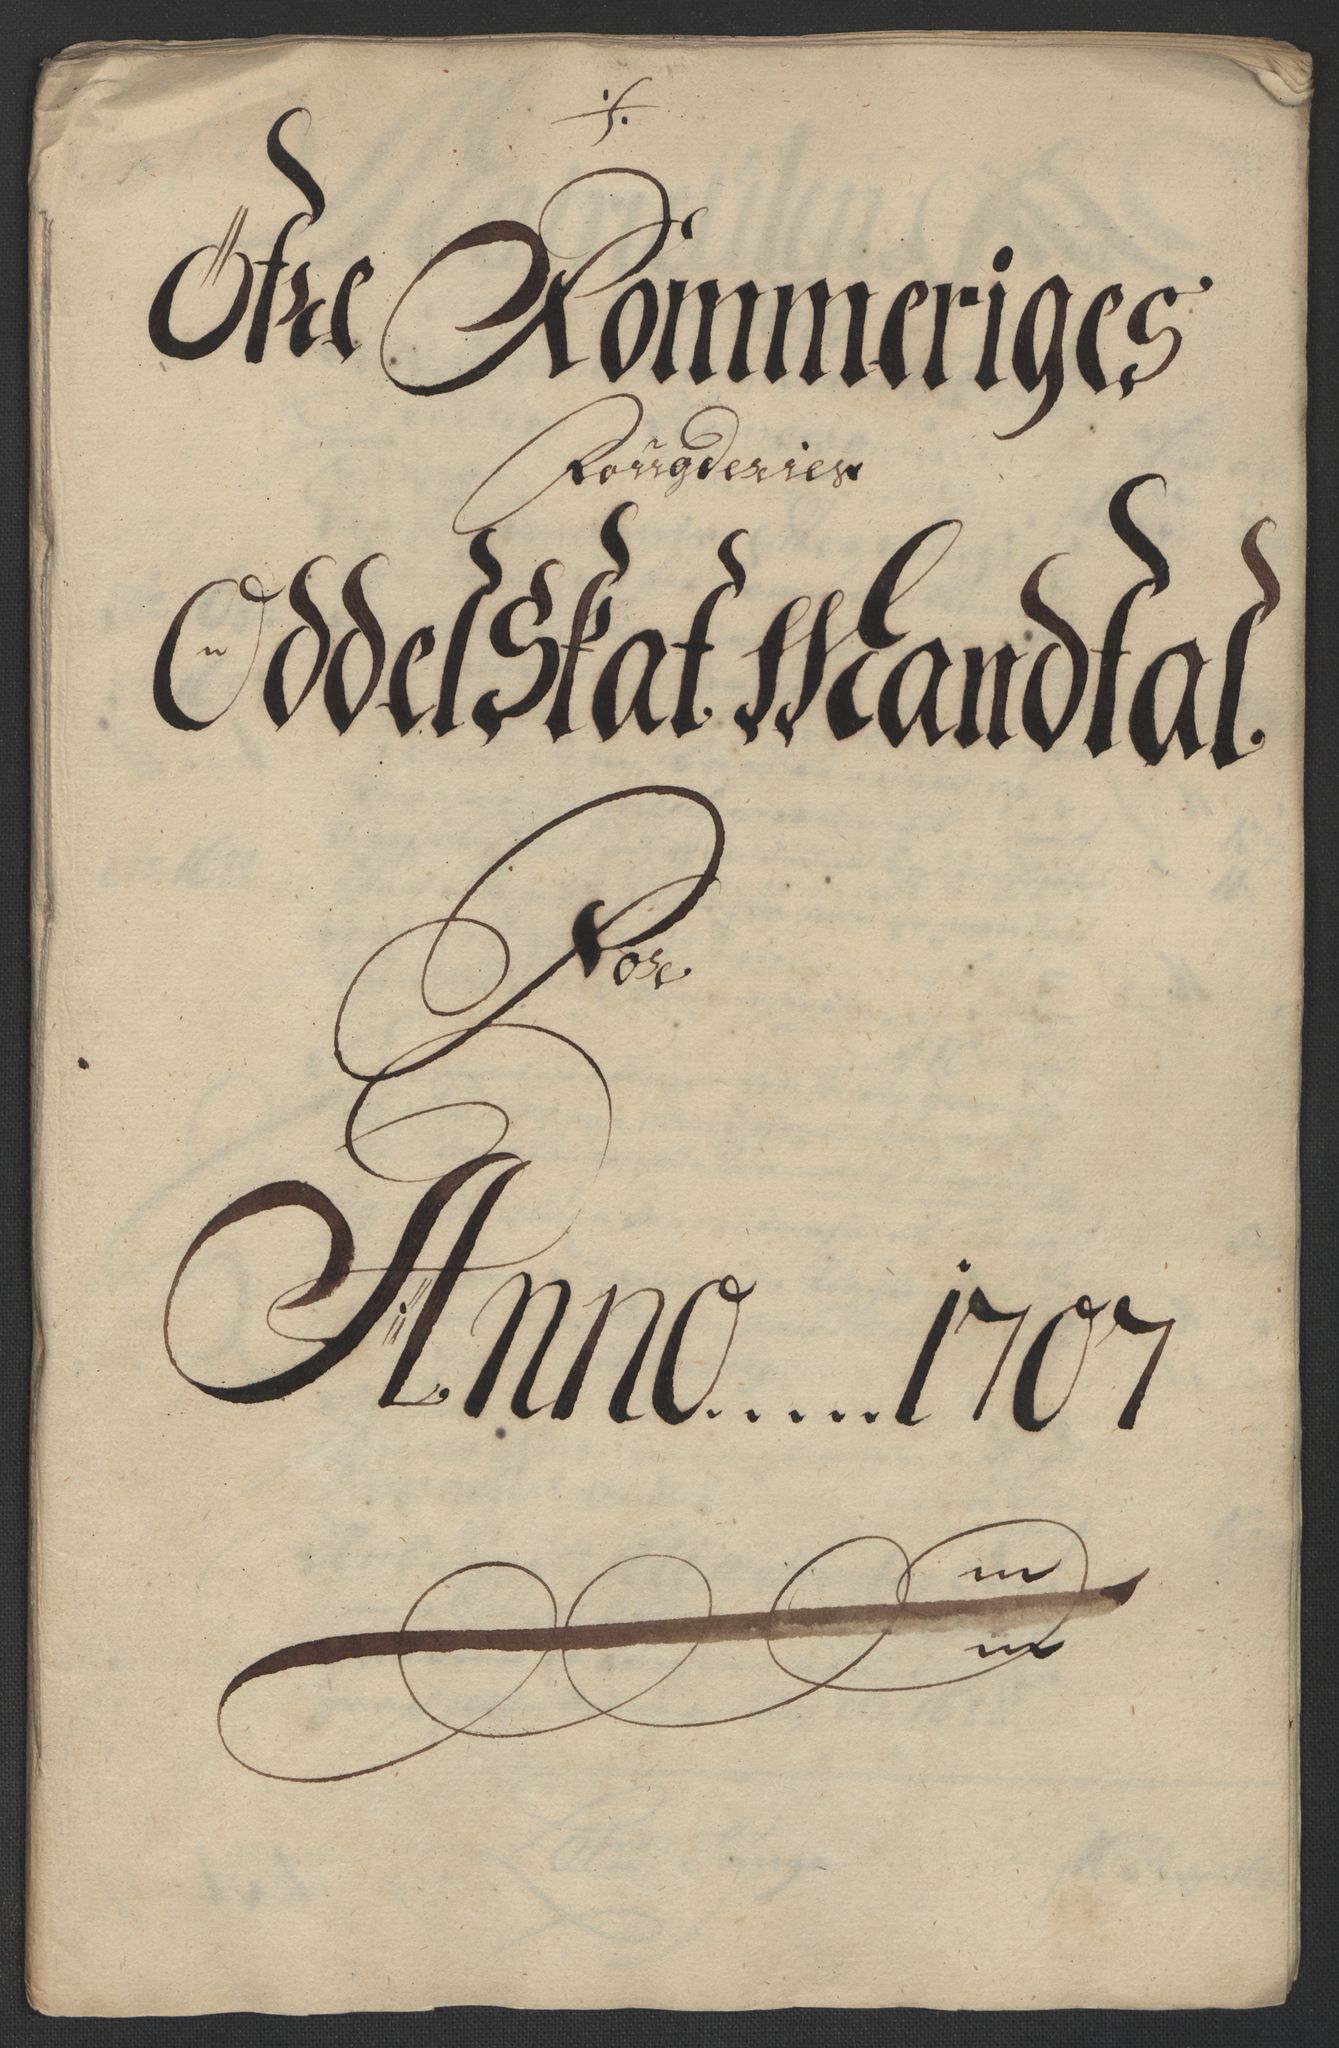 Öfre Rommeriges
Fougderies
Oddelskat Mandtal
For
Anno.....1707